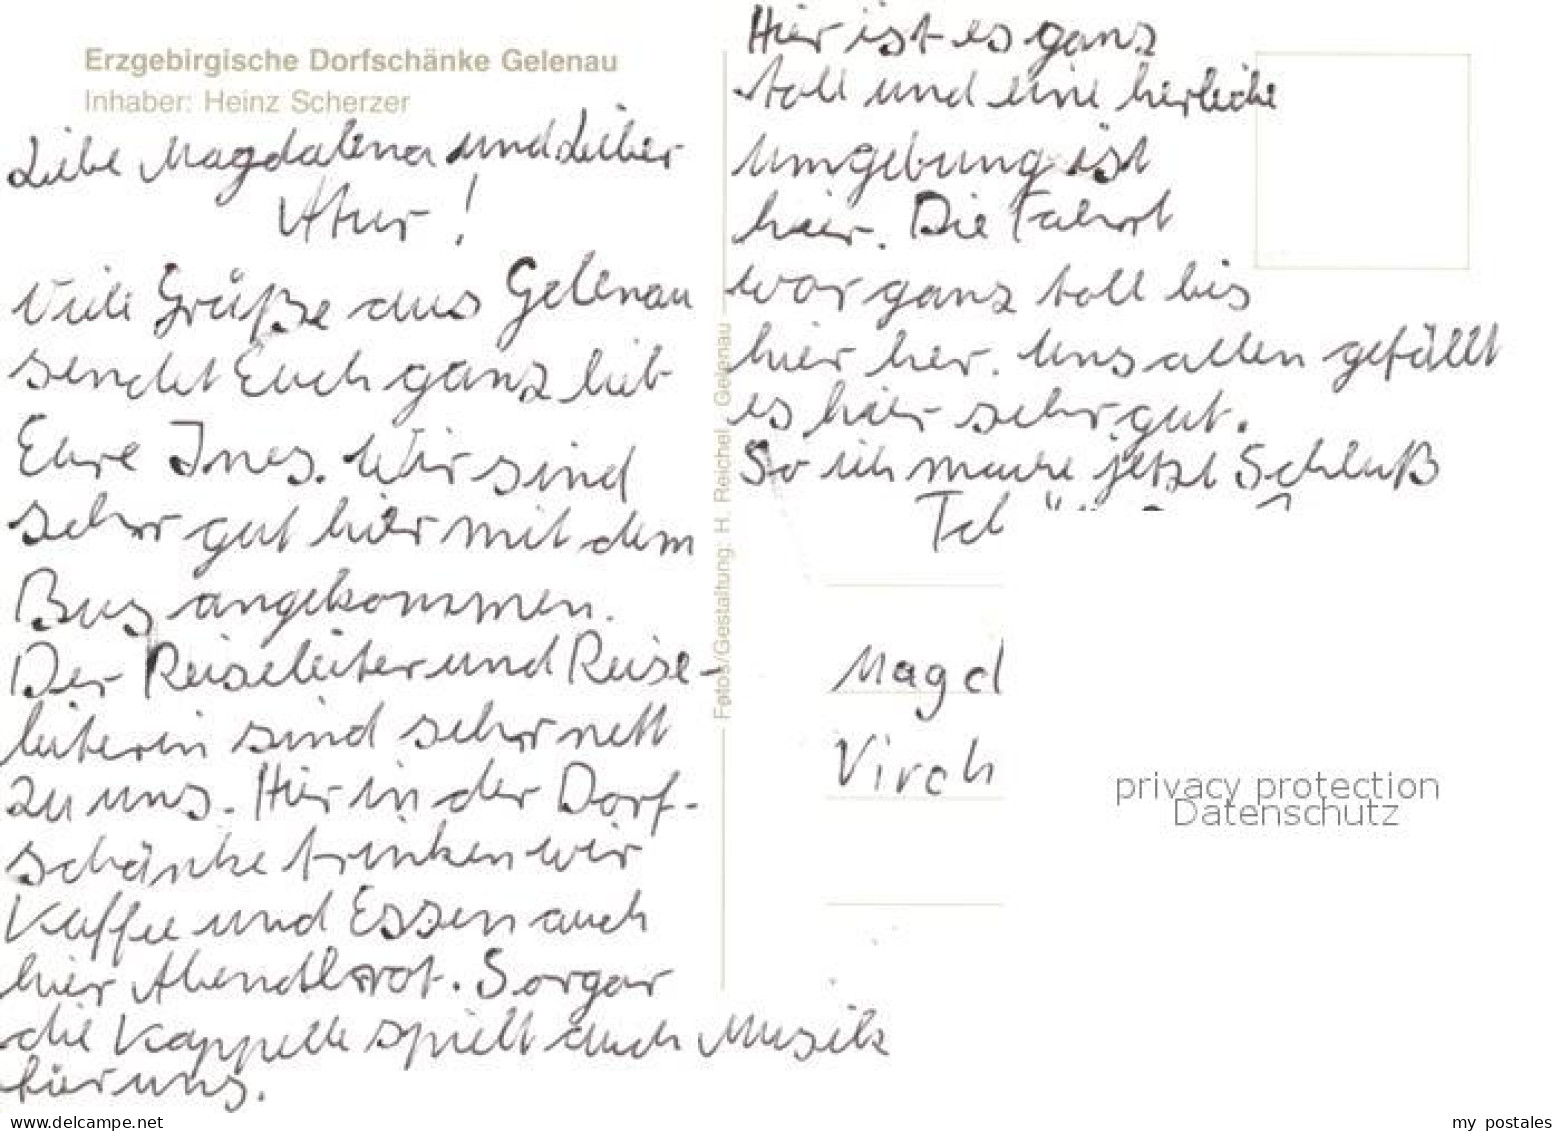 Erzgebirgische Dorfschänke Gelenau
Inhaber: Heinz Scherzer
Liebe Magdalena und Lieber
Atur!
Viele Grüße aus Gelenau
sendet Euch ganz lieb
Eure Ines. Wir sind
sehr gut hier mit dem
Bus angekommen.
Der Reiseleiter und Reise-
leiterin sind sehr nett
zu uns. Hier in der Dorf-
schänke trinken wir
Kaffee und Essen auch
hier Abendbrot. Sorgar
die Kappelle spielt auch Musik
für uns.
Hier ist es ganz
toll und eine herliche
Umgebung ist
hier. Die Fahrt
war ganz toll bis
hier her. Uns allen gefällt
es hier sehr gut.
So ich mache jetzt Schluß
Magd
Virch
Fotos/Gestaltung: H. Reichel, Gelenau
privacy protection
Datenschutz
www.delcampe.net
my_postales